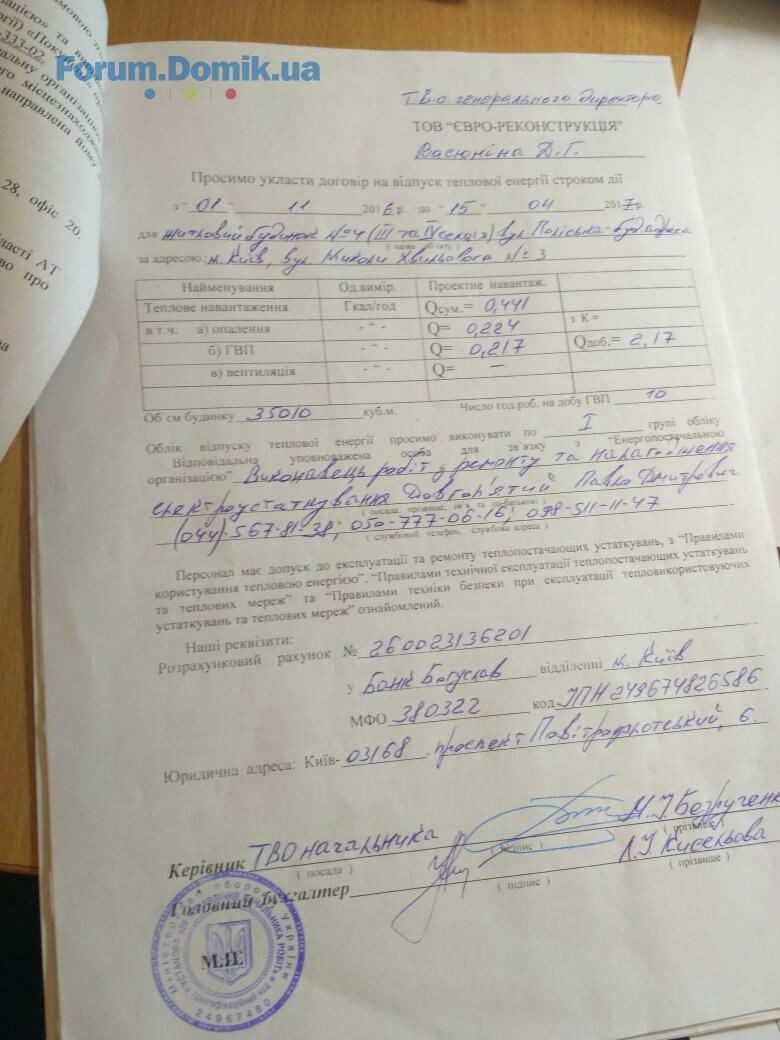 ацією» та
ргії) «Покупець»
-333-02.
альну організацію
ого місцезнаходження
направлена йому
28, офіс 20.
ласті АТ
во про
Forum.Domik.ua
Т.В.о. генерального директора
ТОВ "ЄВРО-РЕКОНСТРУКЦІЯ"
Васюніна Д.Г.
Просимо укласти договір на відпуск теплової енергії строком дії
з "01" 11 2016 р. до "15" 04 2017 р.
для житловий будинок №4 (III та IV секція) вул. Поліська-буд.адреса
( назва об'єкту )
за адресою: м. Київ, вул. Миколи Хвильового № 3
Найменування Од.вимір. Проектне навантаж.
Теплове навантаження Гкал/год Qсум.= 0,441
в т.ч. а) опалення - " - Q= 0,224 з К =
б) ГВП - " - Q= 0,217 Qдоб.= 2,17
в) вентиляція - " - Q= —
Об'єм будинку 35010 куб.м. Число год.роб. на добу ГВП 10
Облік відпуску теплової енергії просимо виконувати по I групі обліку
Відповідальна уповноважена особа для зв'язку з "Енергопостачальною
організацією" Виконавець робіт з ремонту та налагодження
електроустаткування Довгоп'ятий Павло Дмитрович
( посада, прізвище, ім'я та побатькові )
(044)-567-81-38; 050-777-06-16, 098-511-11-47
( службовий телефон, службова адреса )
Персонал має допуск до експлуатації та ремонту теплопостачающих устаткувань, з "Правилами
користування тепловою енергією", "Правилами технічної експлуатації теплопостачающих устаткувань
та теплових мереж" та "Правилами техніки безпеки при експлуатації тепловикористовуючих
устаткувань та теплових мереж" ознайомлений.
Наші реквізити:
Розрахунковий рахунок № 260023136201
у Банк Богуслав відділенні м. Київ
МФО 380322 код ІПН 249674826586
Юридична адреса: Київ- 03168. проспект Повітрофлотський, 6.
Керівник ТВО начальника М.І. Безрученко
( посада ) ( підпис ) ( прізвище )
Головний бухгалтер Л.І. Кисельова
( підпис ) ( прізвище )
М.П.
Міністерство оборони України
Ідентифікаційний код
24967480